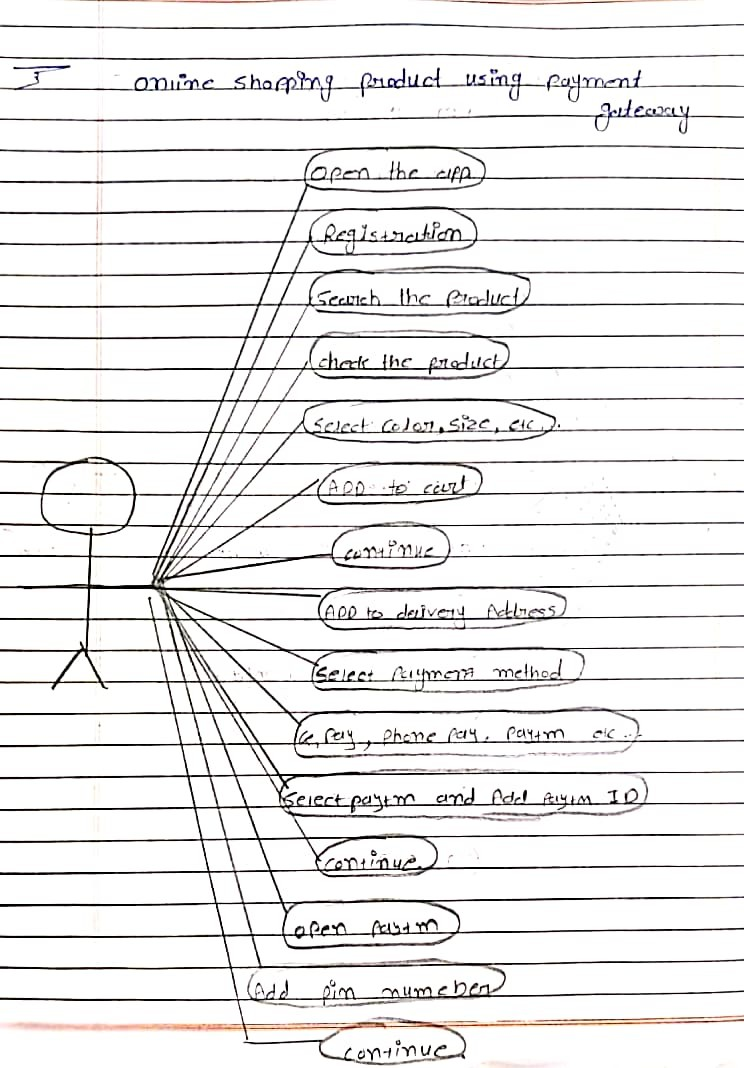 I
online shopping product using payment
gateway
Open the app
Registration
Search the product
check the product
Select color, size, etc..
ADD to cart
continue
ADD to delivery Address
Select Payment method
G, Pay, phone Pay, Paytm etc..
Select paytm and Add Paytm ID
continue
open Paytm
Add pin numeber
continue